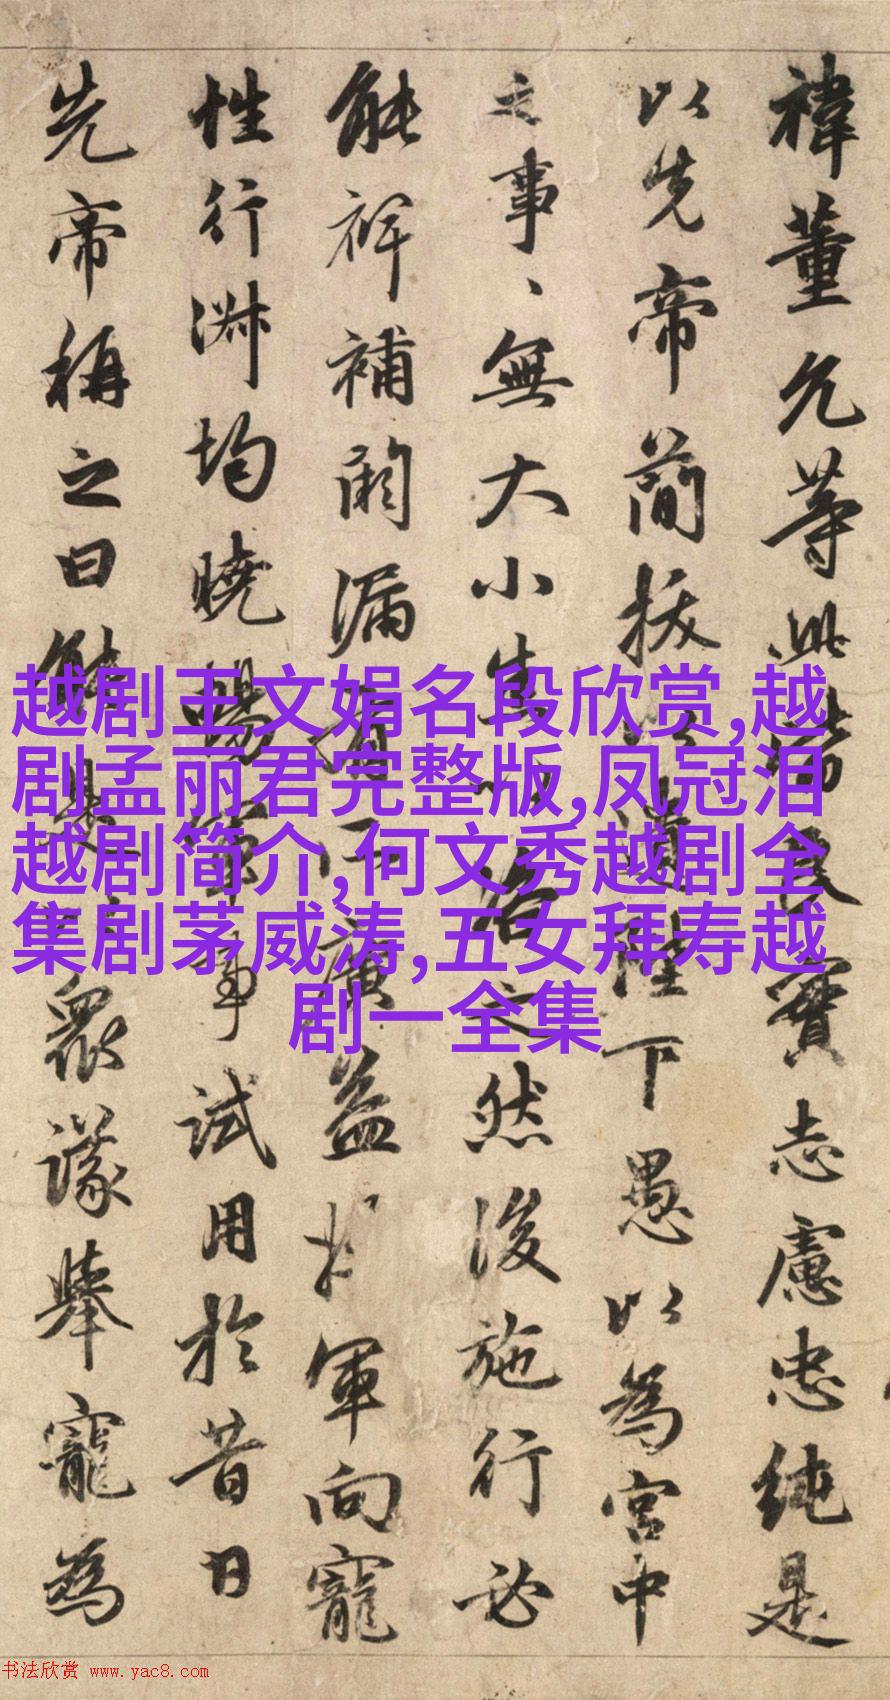 禕董允等此皆良實志慮忠純是
以先帝簡拔以遺陛下愚以為宮中
之事、無大小悉以咨之然後施行必
能裨補闕漏有所廣益將軍向寵
性行淋均曉暢軍事試用於昔日
先帝稱之曰能是以眾議舉寵為
越剧王文娟名段欣赏,越
剧孟丽君完整版,凤冠泪
越剧简介,何文秀越剧全
集剧茅威涛,五女拜寿越
剧一全集
书法欣赏 www.yac8.com